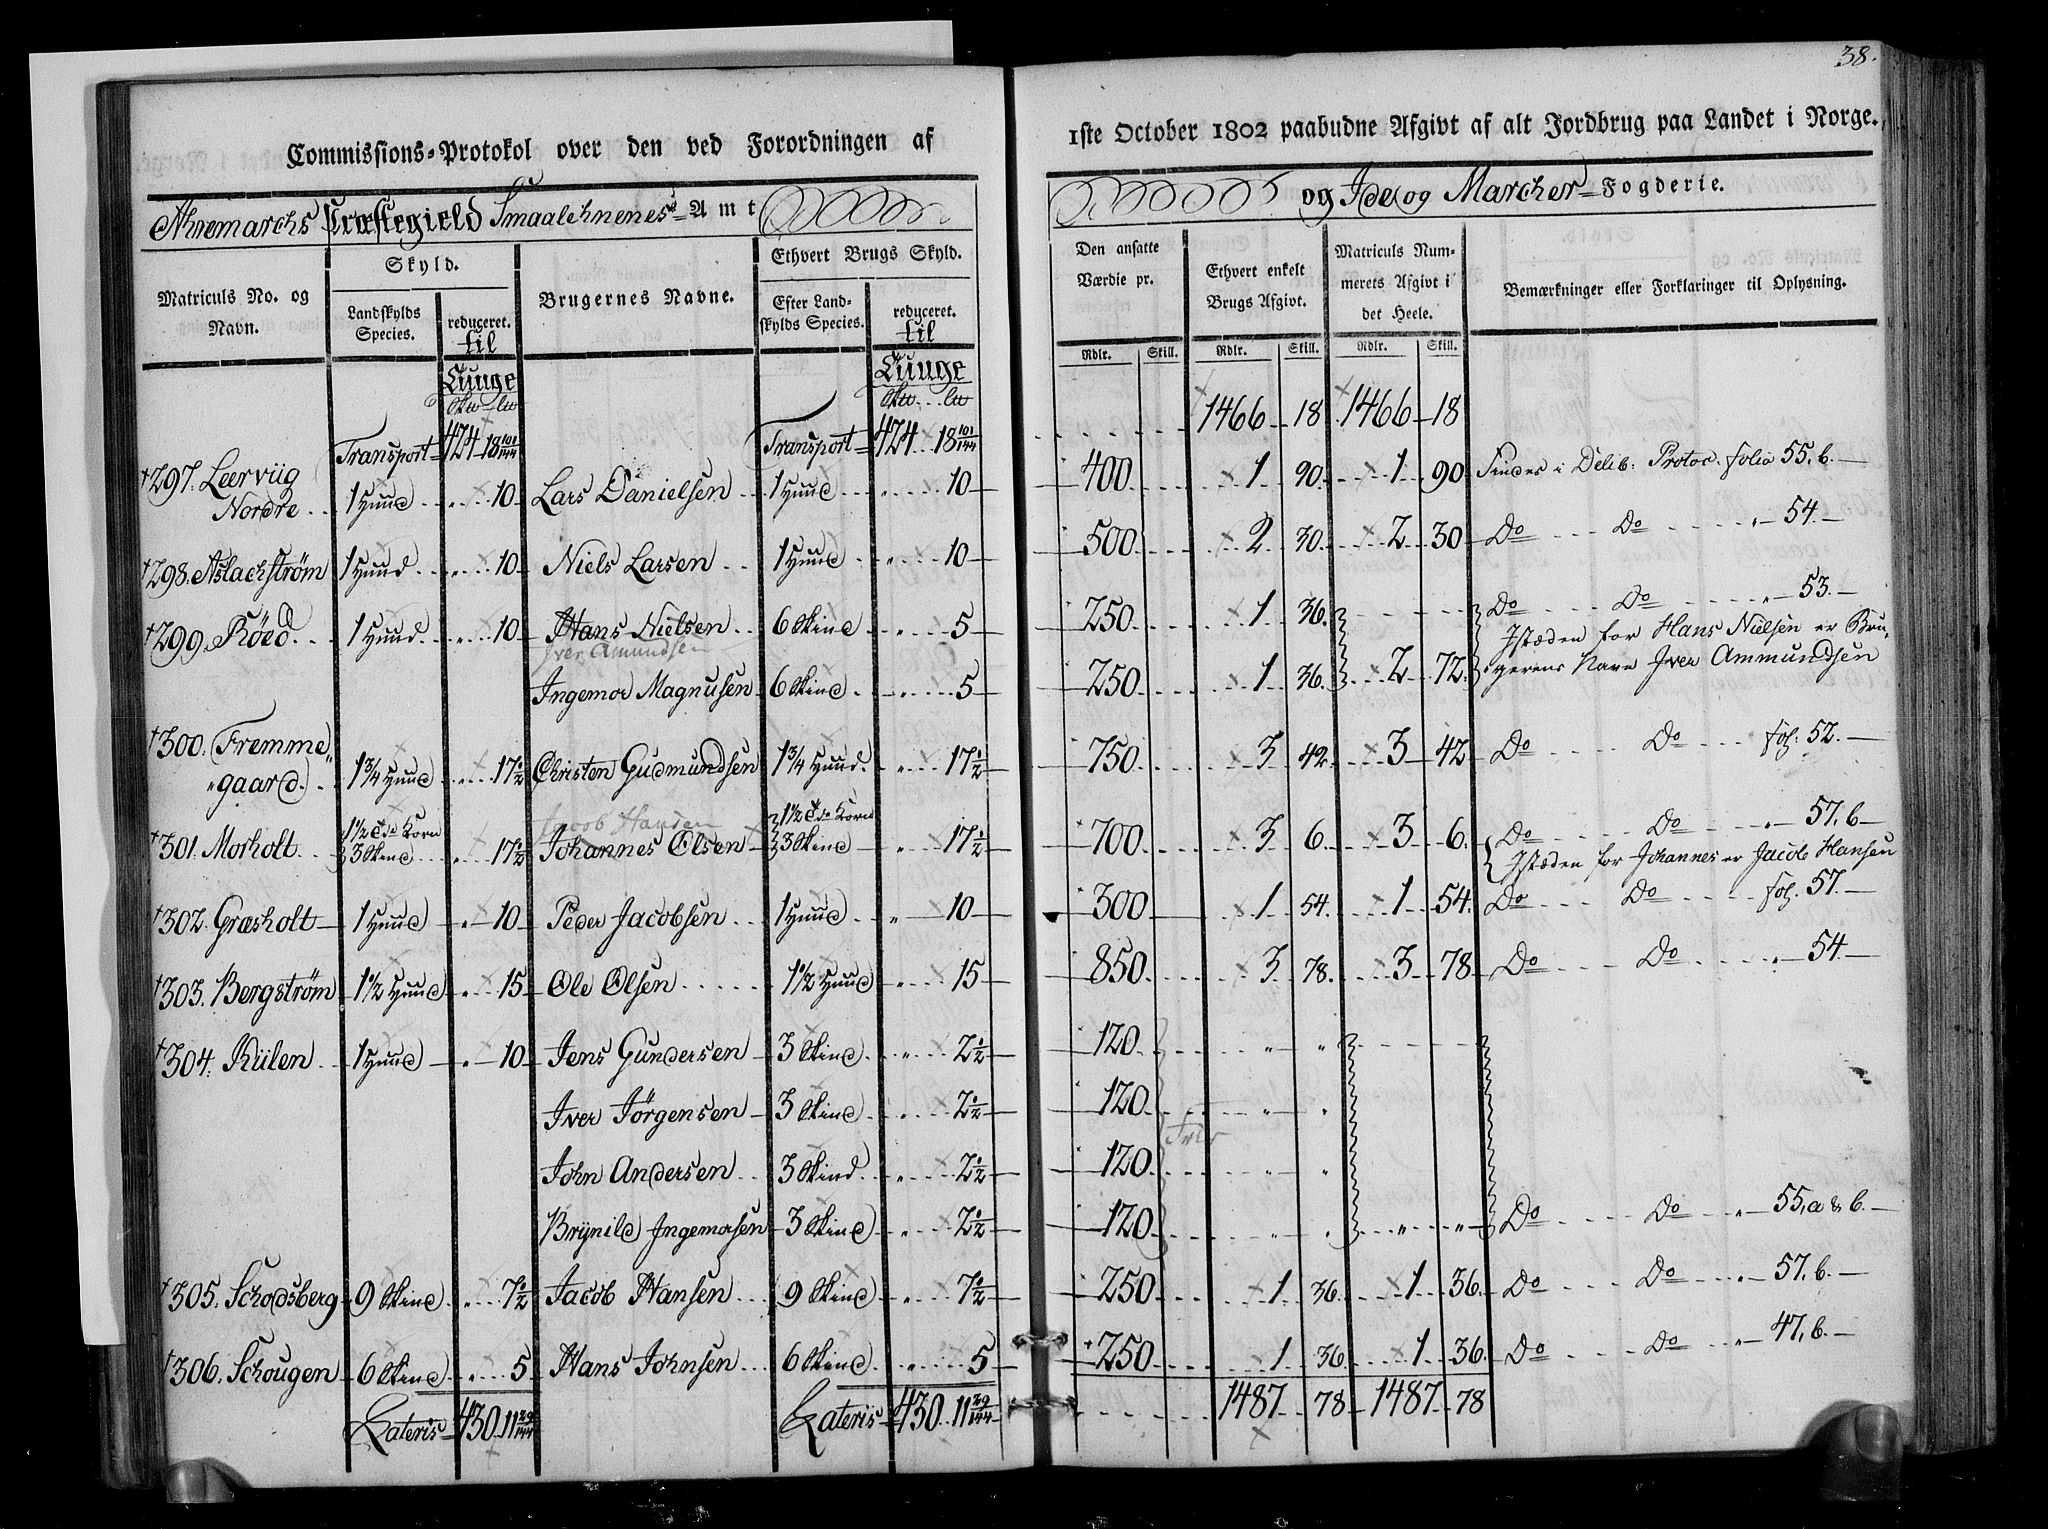 38.
Commissions-Protokol over den ved Forordningen af 1ste October 1802 paabudne Afgivt af alt Jordbrug paa Landet i Norge.
Ahremarchs Præstegield Smaalehnenes Amt og Ide og Marcher Fogderie.
Matriculs No. og Navn.
Skyld.
Landskylds Species.
reduceret. til Tunge
Brugernes Navne.
Ethvert Brugs Skyld.
Efter Landskylds Species.
reduceret. til Tunge
Den ansatte Værdie pr.
Rdlr. Skill.
Ethvert enkelt Brugs Afgivt.
Rdlr. Skill.
Matriculs Nummerets Afgivt i det Heele.
Rdlr. Skill.
Bemærkninger eller Forklaringer til Oplysning.
Transport 424 18 101/144 Transport 424 18 101/144 1466 18 1466 18
297. Leerviig Nordre 1 Huud 10 Lars Danielsen 1 Huud 10 400 1 90 1 90 Findes i Delib: Protoc. folio 55, b.
298. Aslachström 1 Huud 10 Niels Larsen 1 Huud 10 500 2 30 2 30 Do Do 54.
299. Röed 1 Huud 10 Hans Nielsen 6 Skind 5 250 1 36 Do Do 53.
Iver Amundsen
Istæden for Hans Nielsen er Bru-
Ingemor Magnusen 6 Skind 5 250 1 36 2 72 gerens Navn Iver Ammundsen
300. Fremme„
„gaard 1 3/4 Huud 17 1/2 Christen Gudmundsen 1 3/4 Huud 17 1/2 750 3 42 3 42 Do Do fol: 52.
Jacob Hansen
301. Morholt 1 1/2 Tde Korn 3 Skind 17 1/2 Johannes Olsen 1 1/2 Tde Korn 3 Skind 17 1/2 700 3 6 3 6 Do Do 57, b
Istæden for Johannes er Jacob Hansen
302. Græsholt 1 Huud 10 Peder Jacobsen 1 Huud 10 300 1 54 1 54 Do Do fol: 57.
303. Bergström 1 1/2 Huud 15 Ole Olsen 1 1/2 Huud 15 850 3 78 3 78 Do Do 54.
304. Kiilen 1 Huud 10 Jens Gundersen 3 Skind 2 1/2 120 „ „
Iver Jörgensen 3 Skind 2 1/2 120 „ „
Frie
John Andersen 3 Skind 2 1/2 120 „ „
Brynild Ingemorsen 3 Skind 2 1/2 120 „ „ „ „ Do Do 55, a & b.
305. Schodsberg 9 Skind 7 1/2 Jacob Hansen 9 Skind 7 1/2 250 1 36 1 36 Do Do 57, b.
306. Schougen 6 Skind 5 Hans Johnsen 6 Skind 5 250 1 36 1 36 Do Do 47, b.
Lateris 430 11 29/144 Lateris 430 11 29/144 1487 78 1487 78